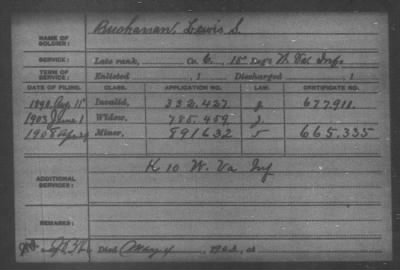 NAME OF SOLDIER: Buchanan, Lewis S.
SERVICE: Late rank, Co. C, 15" Reg't W. Va. Inf.
TERM OF SERVICE: Enlisted , 1 Discharged , 1
DATE OF FILING. CLASS. APPLICATION NO. LAW. CERTIFICATE NO.
Invalid, 332.427 677911.
1903 June 1 Widow, 785.459
1908 Minor, 891632 665.335
ADDITIONAL SERVICES: K 10 W. Va Inf
REMARKS:
Died May 4, at